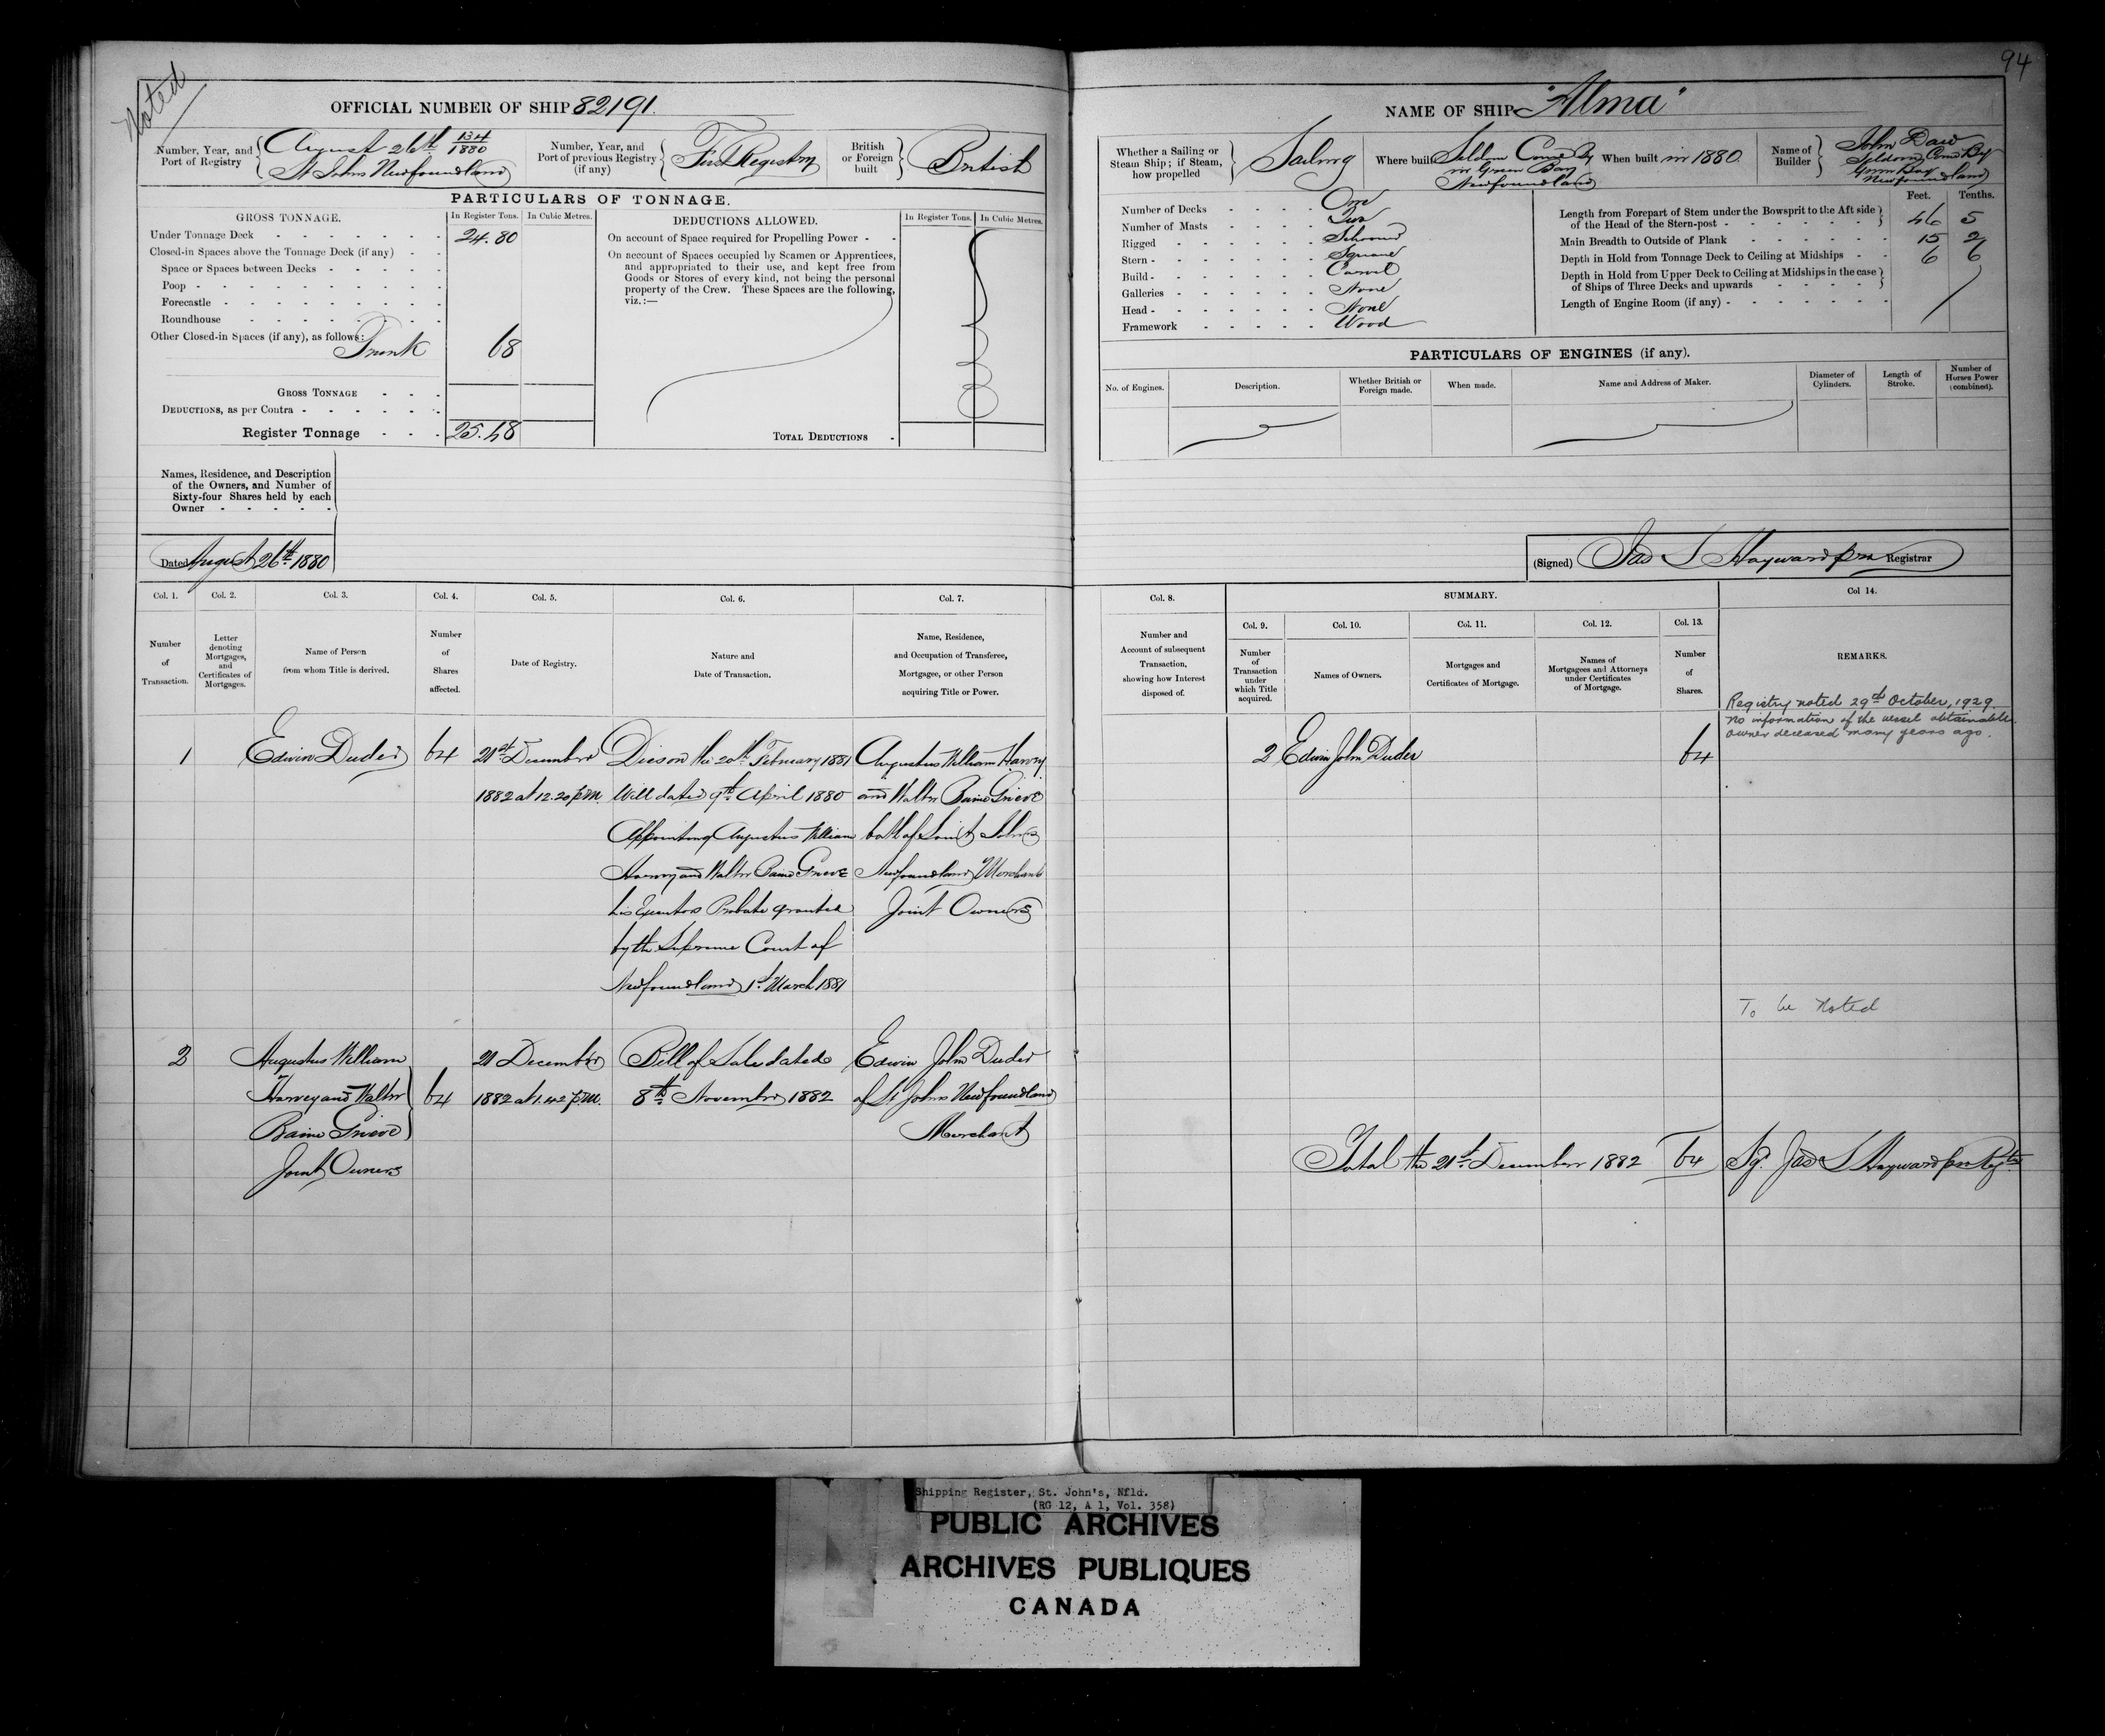 94
Noted
OFFICIAL NUMBER OF SHIP 82191.
NAME OF SHIP "Alma"
Number, Year, and Port of Registry
August 26th 134/1880
St Johns Newfoundland
Number, Year, and Port of previous Registry (if any)
First Registry
British or Foreign built
British
Whether a Sailing or Steam Ship; if Steam, how propelled
Sailing
Where built Seldom Come By
in Green Bay
Newfoundland
When built in 1880
Name of Builder
John Daw
Seldom Come By
Green Bay
Newfoundland
PARTICULARS OF TONNAGE.
GROSS TONNAGE.
In Register Tons.
In Cubic Metres.
Under Tonnage Deck 24.80
Closed-in Spaces above the Tonnage Deck (if any)
Space or Spaces between Decks
Poop
Forecastle
Roundhouse
Other Closed-in Spaces (if any), as follows:
Trunk 68
GROSS TONNAGE
DEDUCTIONS, as per Contra
Register Tonnage 25.48
DEDUCTIONS ALLOWED.
In Register Tons.
In Cubic Metres.
On account of Space required for Propelling Power
On account of Spaces occupied by Seamen or Apprentices,
and appropriated to their use, and kept free from
Goods or Stores of every kind, not being the personal
property of the Crew. These Spaces are the following,
viz.:—
TOTAL DEDUCTIONS
Number of Decks One
Number of Masts Two
Rigged Schooner
Stern Square
Build Carvel
Galleries None
Head None
Framework Wood
Feet. Tenths.
Length from Forepart of Stem under the Bowsprit to the Aft side
of the Head of the Stern-post 46 5
Main Breadth to Outside of Plank 15 2
Depth in Hold from Tonnage Deck to Ceiling at Midships 6 6
Depth in Hold from Upper Deck to Ceiling at Midships in the case
of Ships of Three Decks and upwards
Length of Engine Room (if any)
PARTICULARS OF ENGINES (if any).
No. of Engines.
Description.
Whether British or Foreign made.
When made.
Name and Address of Maker.
Diameter of Cylinders.
Length of Stroke.
Number of Horses Power (combined).
Names, Residence, and Description
of the Owners, and Number of
Sixty-four Shares held by each
Owner
Dated August 26th 1880
(Signed) Jas S Hayward pro Registrar
Col. 1.
Number of Transaction.
Col. 2.
Letter denoting Mortgages, and Certificates of Mortgages.
Col. 3.
Name of Person from whom Title is derived.
Col. 4.
Number of Shares affected.
Col. 5.
Date of Registry.
Col. 6.
Nature and Date of Transaction.
Col. 7.
Name, Residence, and Occupation of Transferee, Mortgagee, or other Person acquiring Title or Power.
Col. 8.
Number and Account of subsequent Transaction, showing how Interest disposed of.
SUMMARY.
Col. 9.
Number of Transaction under which Title acquired.
Col. 10.
Names of Owners.
Col. 11.
Mortgages and Certificates of Mortgage.
Col. 12.
Names of Mortgagees and Attorneys under Certificates of Mortgage.
Col. 13.
Number of Shares.
Col 14.
REMARKS.
Registry noted 29th October, 1929.
No information of the vessel obtainable.
Owner deceased many years ago.
1
Edwin Duder
64
21st December
1882 at 12.20 p.m.
Dies on the 20th February 1881
Will dated 9th April 1880
Appointing Augustus William
Harvey and Walter Baine Grieve
his Executors Probate granted
by the Supreme Court of
Newfoundland 1st March 1881
Augustus William Harvey
and Walter Baine Grieve
both of Saint Johns
Newfoundland Merchants
Joint Owners
2 Edwin John Duder 64
To be Noted
2
Augustus William
Harvey and Walter
Baine Grieve
Joint Owners
64
21 December
1882 at 1.42 p.m.
Bill of Sale dated
8th November 1882
Edwin John Duder
of St Johns Newfoundland
Merchant
Total the 21st December 1882 64 Sgd. Jas S Hayward pro Regtr
Shipping Register, St. John's, Nfld.
(RG 12, A 1, Vol. 358)
PUBLIC ARCHIVES
ARCHIVES PUBLIQUES
CANADA